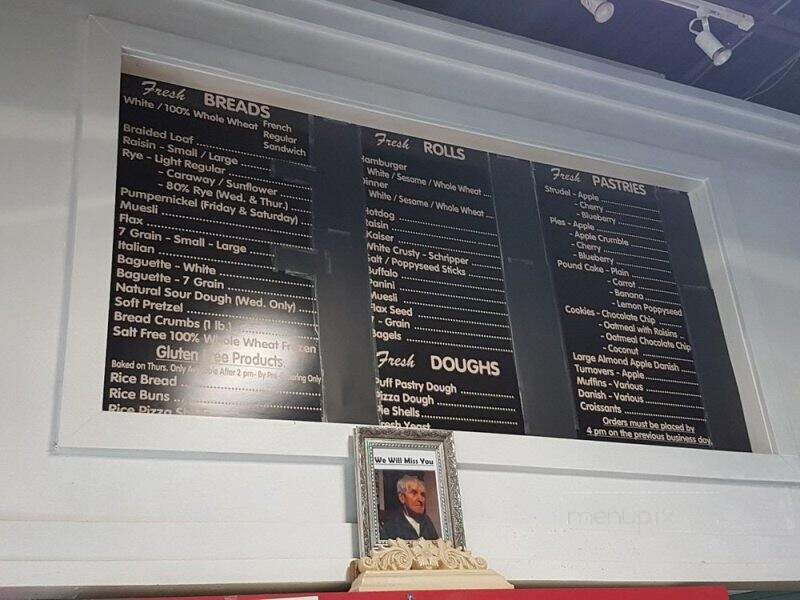 Fresh BREADS
White / 100% Whole Wheat French
Regular
Sandwich
Braided Loaf
Raisin - Small / Large
Rye - Light Regular
- Caraway / Sunflower
- 80% Rye (Wed. & Thur.)
Pumpernickel (Friday & Saturday)
Muesli
Flax
7 Grain - Small - Large
Italian
Baguette - White
Baguette - 7 Grain
Natural Sour Dough (Wed. Only)
Soft Pretzel
Bread Crumbs (1 lb.)
Salt Free 100% Whole Wheat Frozen
Gluten Free Products
Baked on Thurs. Only After 2 pm - By Only
Rice Bread
Rice Buns
Rice Pizza
Fresh ROLLS
Hamburger
White / Sesame / Whole Wheat
Dinner
White / Sesame / Whole Wheat
Hotdog
Raisin
Kaiser
White Crusty - Schripper
Salt / Poppyseed Sticks
Buffalo
Panini
Muesli
Flax Seed
- Grain
Bagels
Fresh DOUGHS
Puff Pastry Dough
Pizza Dough
Pie Shells
Fresh Yeast
Fresh PASTRIES
Strudel - Apple
- Cherry
- Blueberry
Pies - Apple
- Apple Crumble
- Cherry
- Blueberry
Pound Cake - Plain
- Carrot
- Banana
- Lemon Poppyseed
Cookies - Chocolate Chip
- Oatmeal with Raisins
- Oatmeal Chocolate Chip
- Coconut
Large Almond Apple Danish
Turnovers - Apple
Muffins - Various
Danish - Various
Croissants
Orders must be placed by
4 pm on the previous business day
We Will Miss You
menupix